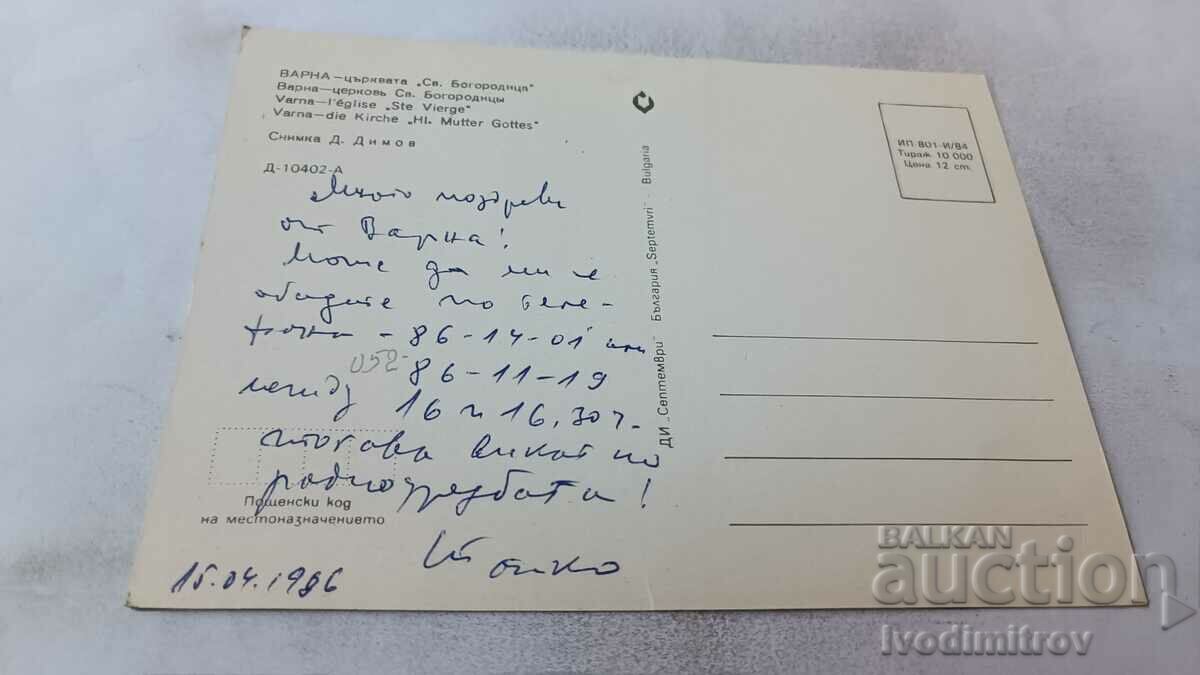 ВАРНА—църквата „Св. Богородица"
Варна—церковь Св. Богородицы
Varna—l'église „Ste Vierge"
Varna—die Kirche „Hl. Mutter Gottes"
Снимка Д. Димов
Д-10402-А
Много поздрави
от Варна!
Може да ми се
обадите по теле-
фона - 86-14-01 или
052- 86-11-19
между 16 и 16,30 ч.
тогава викат по
радиоуредбата!
Пощенски код
на местоназначението
15.04.1986
ДИ „Септември" България „Septemvri" - Bulgaria
ИП 801-И/84
Тираж 10 000
Цена 12 ст.
BALKAN
auction
Ivodimitrov